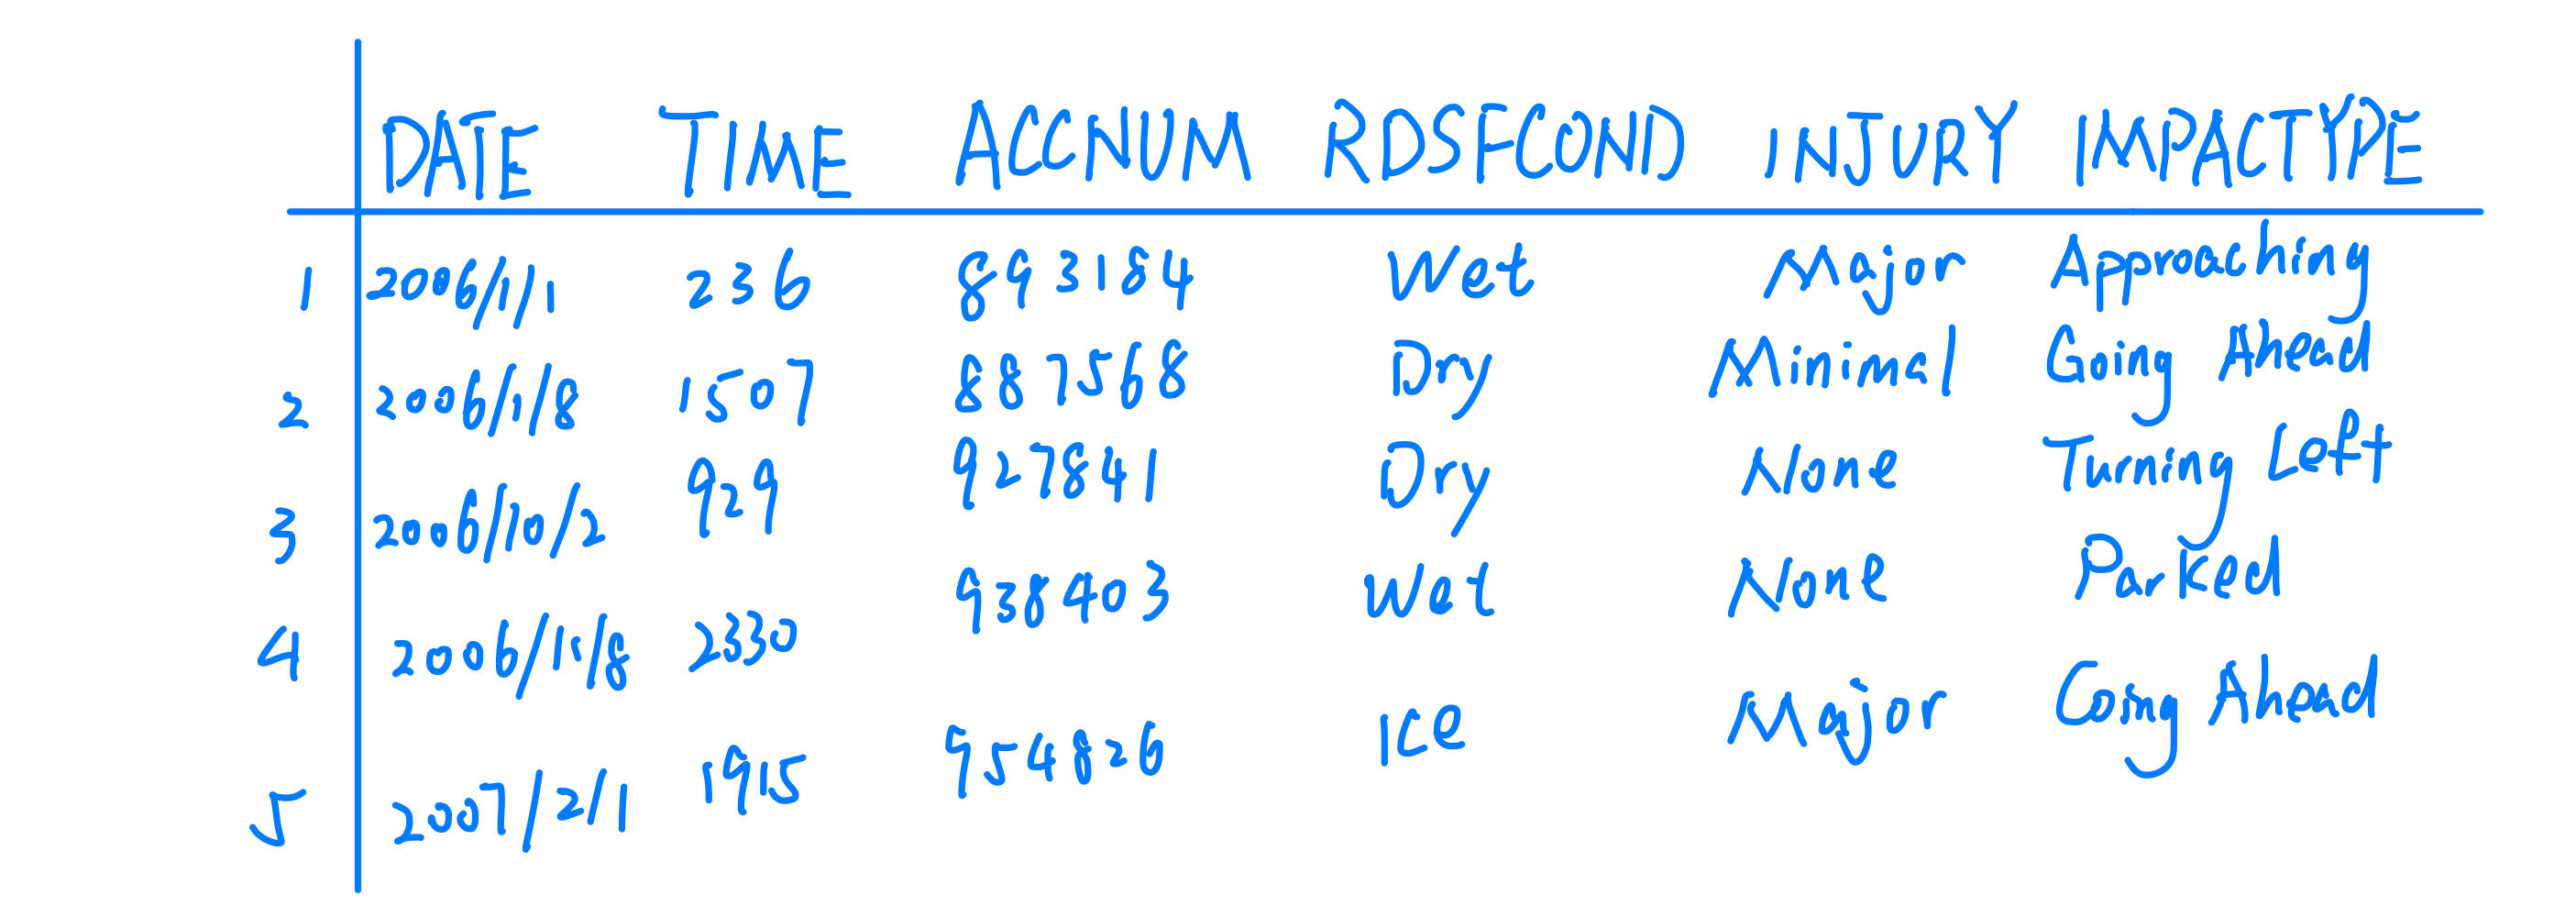 DATE TIME ACCNUM RDSFCOND INJURY IMPACTYPE
1 2006/1/1 236 893184 Wet Major Approaching
2 2006/1/8 1507 887568 Dry Minimal Going Ahead
3 2006/10/2 929 927841 Dry None Turning Left
4 2006/11/8 2330 938403 Wet None Parked
5 2007/2/1 1915 954826 Ice Major Going Ahead